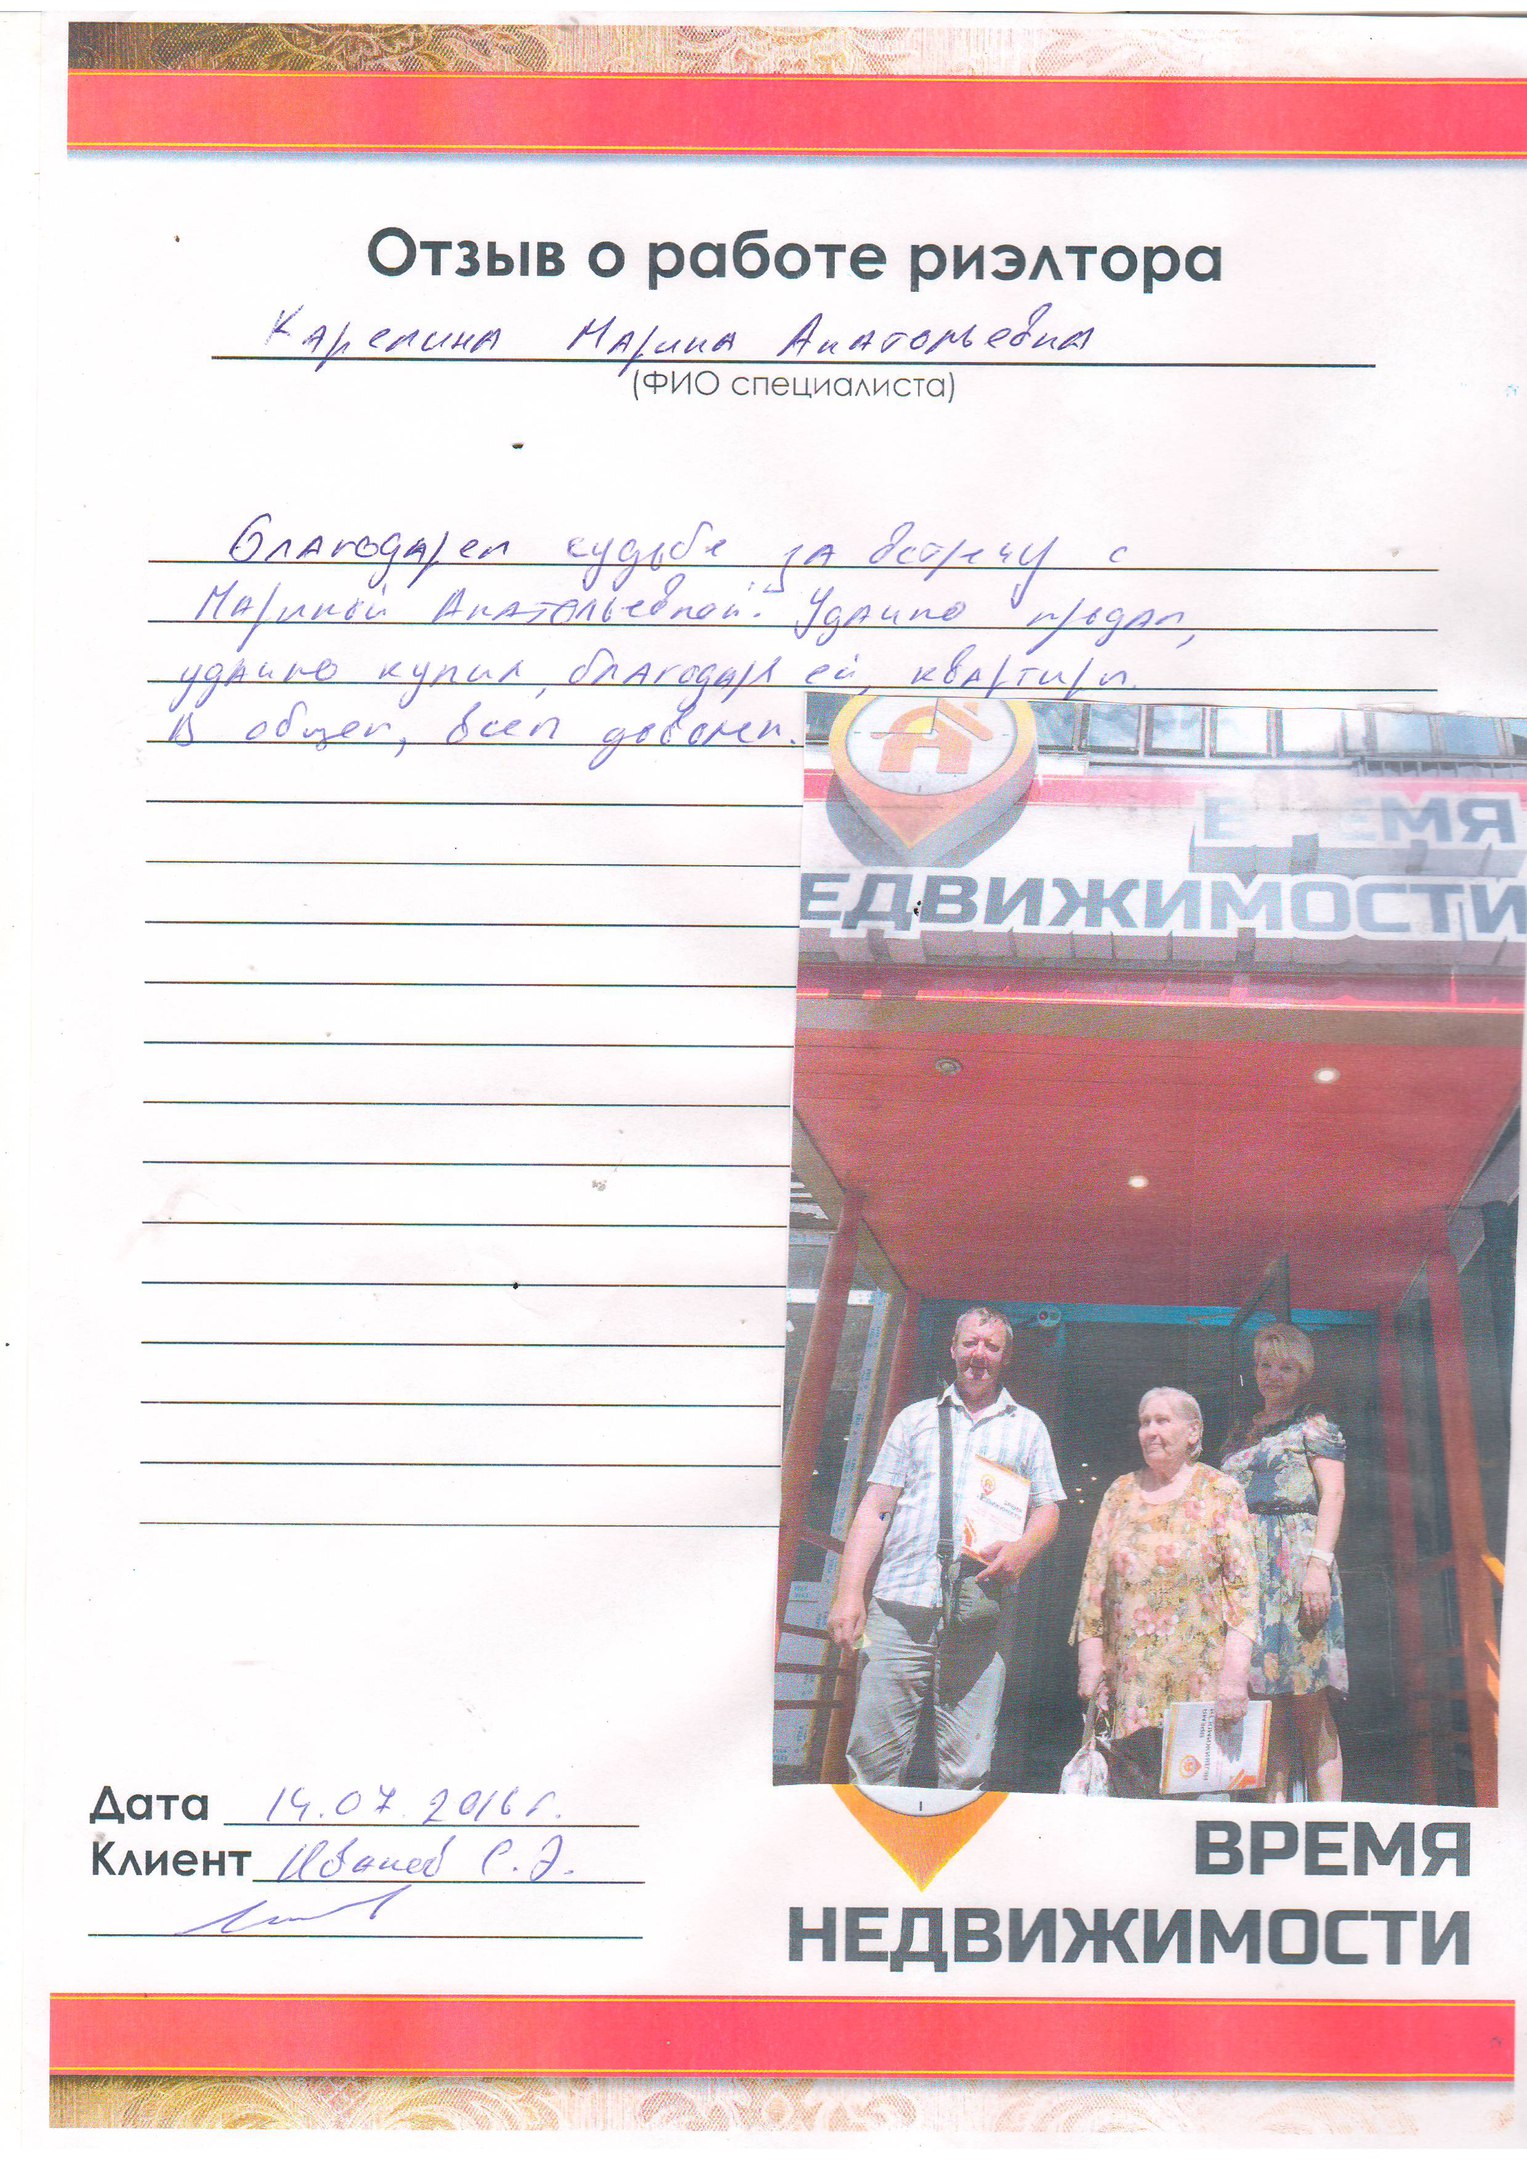 Отзыв о работе риэлтора
Карелина Марина Анатольевна
(ФИО специалиста)
Благодарен судьбе за встречу с
Мариной Анатольевной. Удачно продал,
удачно купил, благодаря ей, квартиры.
В общем, всем доволен.
ВРЕМЯ
ЕДВИЖИМОСТИ
ВРЕМЯ
НЕДВИЖИМОСТИ
Дата 14.07.2016г.
Клиент Иванов С.Э.
ВРЕМЯ
НЕДВИЖИМОСТИ